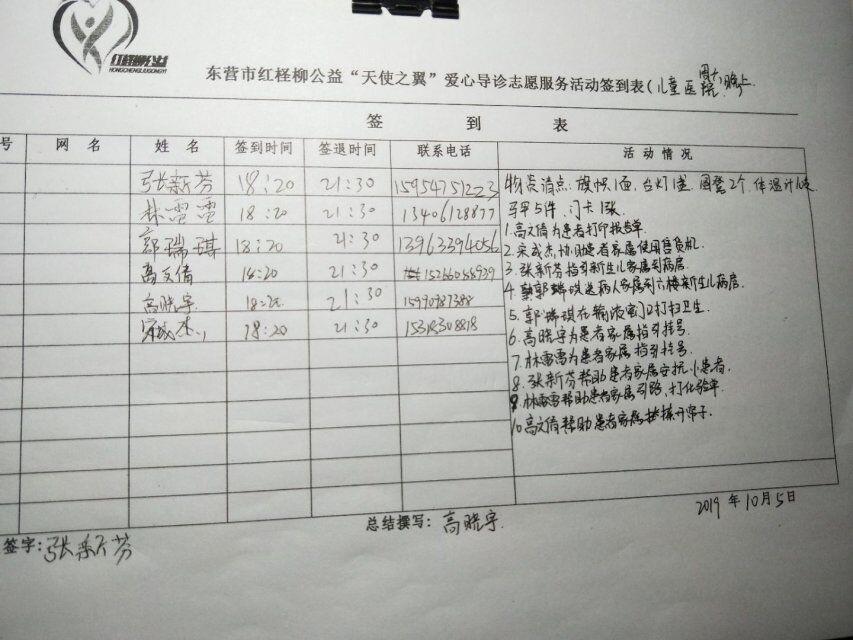 红柽柳公益
HONGCHENGLIUGONGYI
东营市红柽柳公益“天使之翼”爱心导诊志愿服务活动签到表(儿童医院,周六晚上
签 到 表
号 网 名 姓 名 签到时间 签退时间 联系电话 活 动 情 况
张新芬 18:20 21:30 15954751223 物资清点:旗帜1面,台灯1盏,圆凳2个,体温计1支
林雷雷 18:20 21:30 13406128877 马甲5件,门卡1张
郭瑞琪 18:20 21:30 13963394056 1.高文倩为患者打印报告单
2.宋成杰协助患者家属使用售货机
高文倩 18:20 21:30 15266048939 3.张新芬指引新生儿家属到病房
高晓宇 18:20 21:30 15990787388 4.郭瑞琪送病人家属到六楼新生儿病房
宋成杰 18:20 21:30 15313308818 5.郭瑞琪在输液室门口打扫卫生
6.高晓宇为患者家属指引挂号
7.林雷雷为患者家属指引挂号
8.张新芬帮助患者家属安抚小患者
9.林雷雷帮助患者家属引路,打化验单
10高文倩帮助患者家属 开单子
2019年10月5日
签字:张新芬 总结撰写:高晓宇